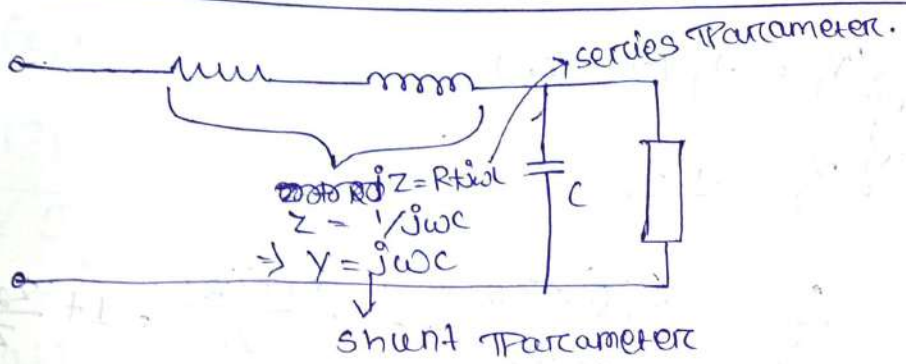 series Parameter.
jZ=R+jωL
Z = 1/jωC
⇒ Y = jωC
C
shunt Parameter